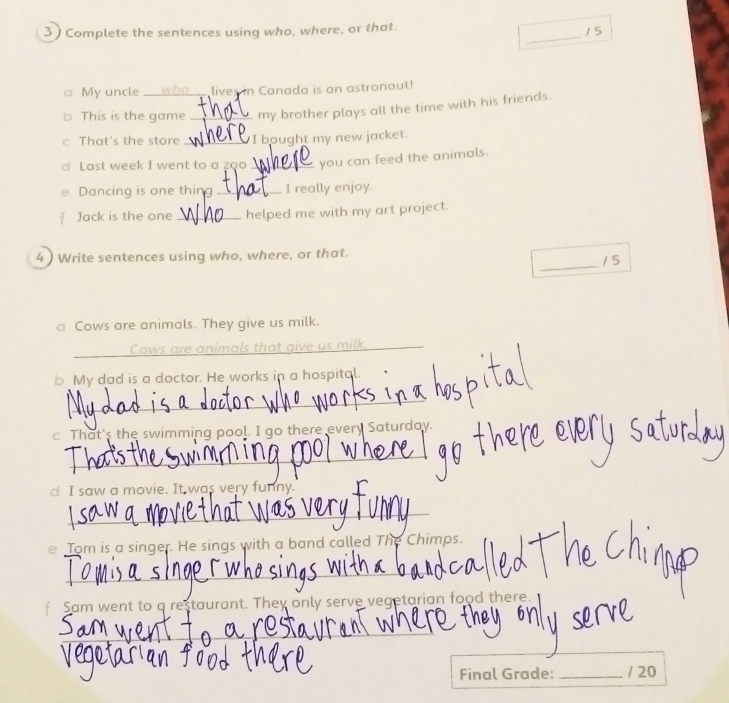 3 Complete the sentences using who, where, or that.
/ 5
a My uncle who lives in Canada is an astronaut!
b This is the game that my brother plays all the time with his friends.
c That's the store where I bought my new jacket.
d Last week I went to a zoo where you can feed the animals.
e Dancing is one thing that I really enjoy.
f Jack is the one who helped me with my art project.
4 Write sentences using who, where, or that.
/ 5
a Cows are animals. They give us milk.
Cows are animals that give us milk.
b My dad is a doctor. He works in a hospital.
My dad is a doctor who works in a hospital
c That's the swimming pool. I go there every Saturday.
That's the swimming pool where I go there every saturday
d I saw a movie. It was very funny.
I saw a movie that was very funny
e Tom is a singer. He sings with a band called The Chimps.
Tom is a singer who sings with a band called The Chimp
f Sam went to a restaurant. They only serve vegetarian food there.
Sam went to a restaurant where they only serve
vegetarian food there
Final Grade: / 20